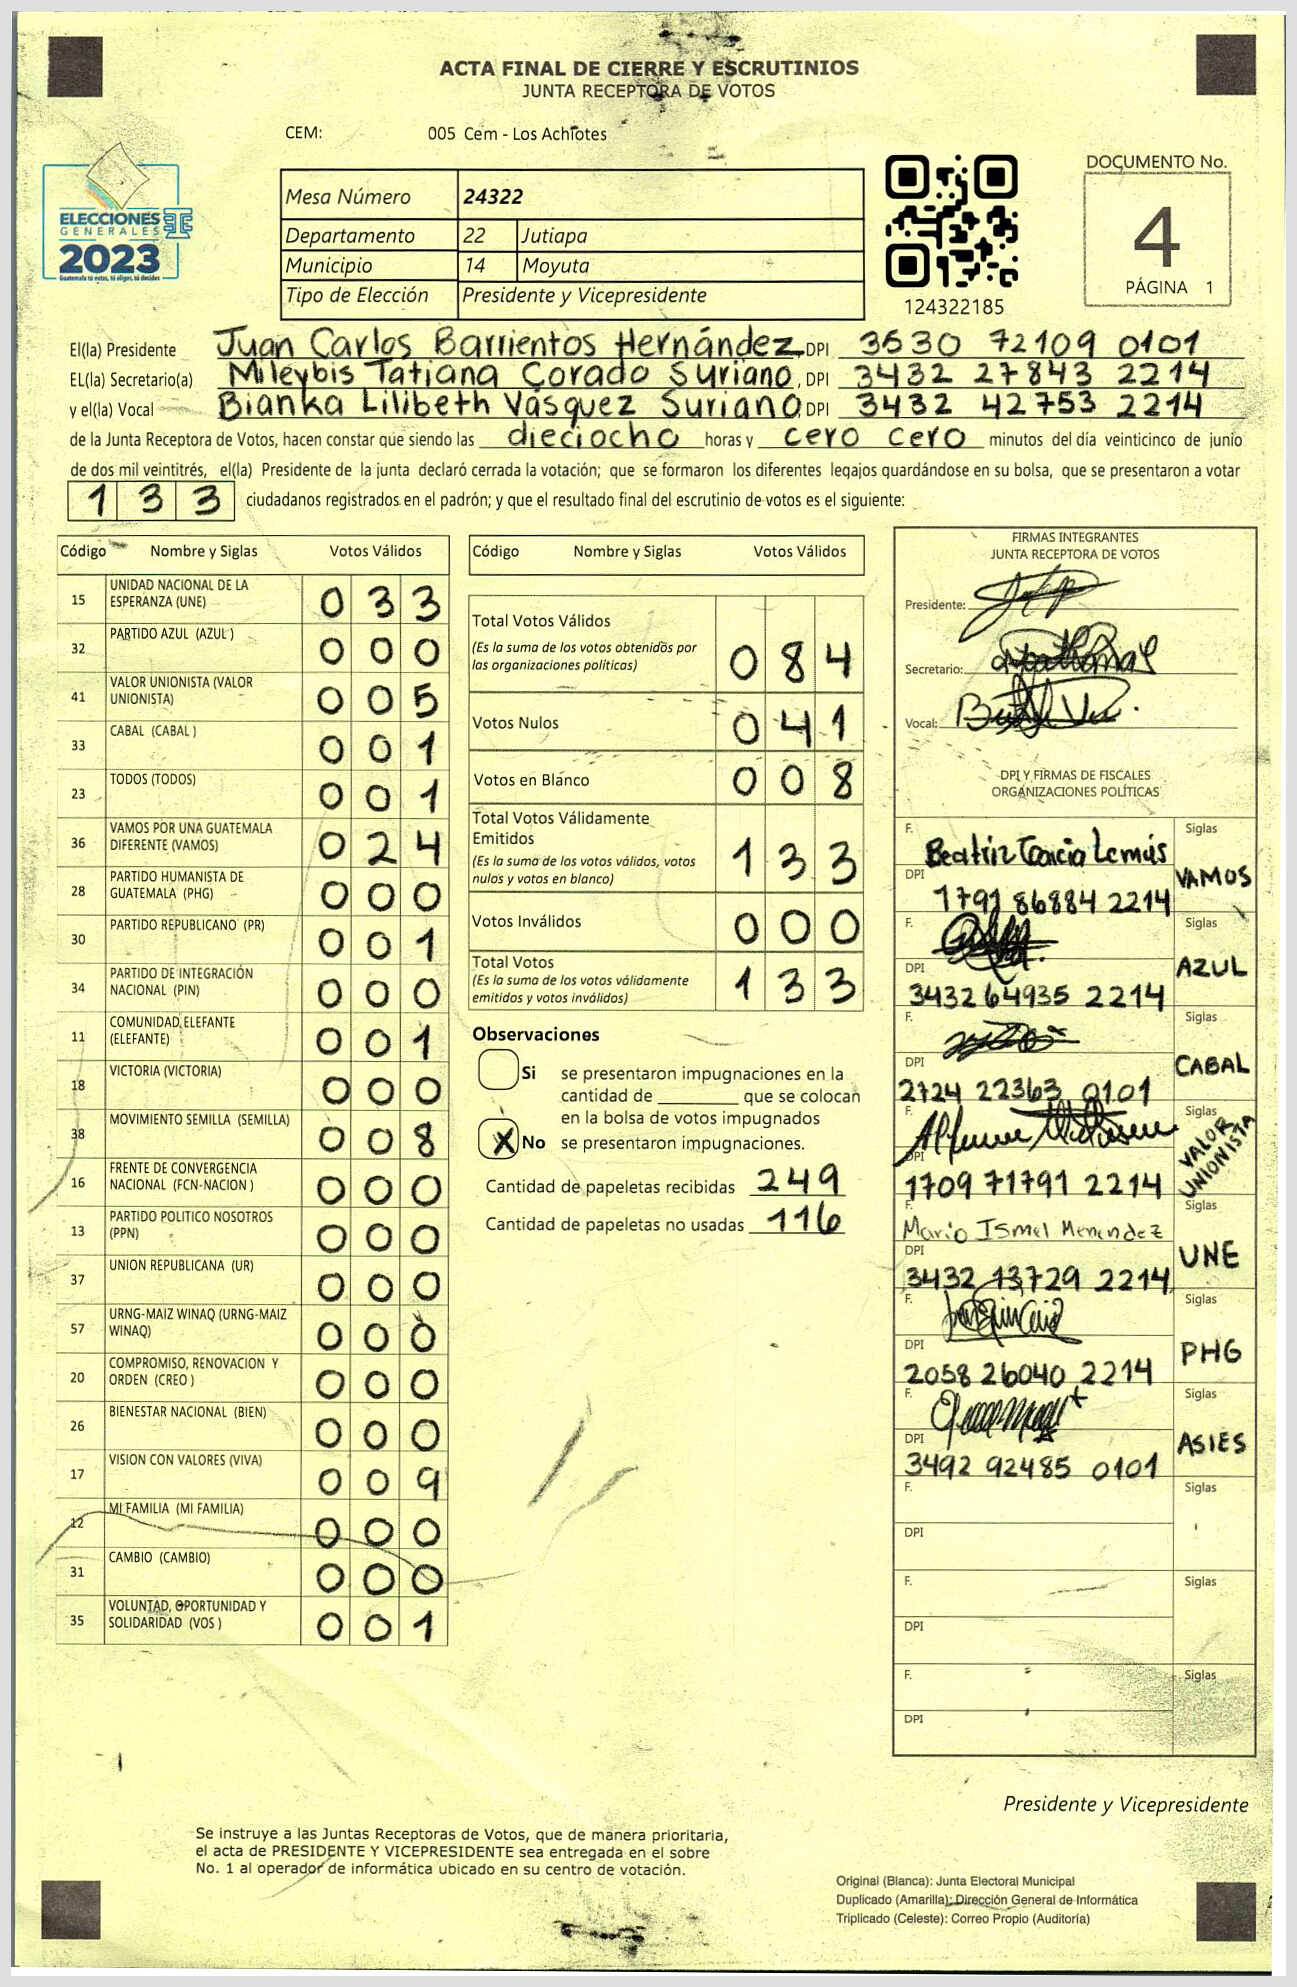 ACTA FINAL DE CIERRE Y ESCRUTINIOS
JUNTA RECEPTORA DE VOTOS
CEM: 005 Cem - Los Achiotes
ELECCIONES
GENERALES
2023
Guatemala tú votas, tú eliges, tú decides
Mesa Número 24322
Departamento 22 Jutiapa
Municipio 14 Moyuta
Tipo de Elección Presidente y Vicepresidente
124322185
DOCUMENTO No.
4
PÁGINA 1
El(la) Presidente Juan Carlos Barrientos Hernández DPI 3530 72109 0101
EL(la) Secretario(a) Mileybis Tatiana Corado Suriano, DPI 3432 27843 2214
y el(la) Vocal Bianka Lilibeth Vásquez Suriano, DPI 3432 42753 2214
de la Junta Receptora de Votos, hacen constar que siendo las dieciocho horas y cero cero minutos del día veinticinco de junio
de dos mil veintitrés, el(la) Presidente de la junta declaró cerrada la votación; que se formaron los diferentes legajos guardándose en su bolsa, que se presentaron a votar
133 ciudadanos registrados en el padrón; y que el resultado final del escrutinio de votos es el siguiente:
Código Nombre y Siglas Votos Válidos
15 UNIDAD NACIONAL DE LA ESPERANZA (UNE) 033
32 PARTIDO AZUL (AZUL ) 000
41 VALOR UNIONISTA (VALOR UNIONISTA) 005
33 CABAL (CABAL ) 001
23 TODOS (TODOS) 001
36 VAMOS POR UNA GUATEMALA DIFERENTE (VAMOS) 024
28 PARTIDO HUMANISTA DE GUATEMALA (PHG) 000
30 PARTIDO REPUBLICANO (PR) 001
34 PARTIDO DE INTEGRACIÓN NACIONAL (PIN) 000
11 COMUNIDAD ELEFANTE (ELEFANTE) 001
18 VICTORIA (VICTORIA) 000
38 MOVIMIENTO SEMILLA (SEMILLA) 008
16 FRENTE DE CONVERGENCIA NACIONAL (FCN-NACION ) 000
13 PARTIDO POLITICO NOSOTROS (PPN) 000
37 UNION REPUBLICANA (UR) 000
57 URNG-MAIZ WINAQ (URNG-MAIZ WINAQ) 000
20 COMPROMISO, RENOVACION Y ORDEN (CREO ) 000
26 BIENESTAR NACIONAL (BIEN) 000
17 VISION CON VALORES (VIVA) 009
12 MI FAMILIA (MI FAMILIA) 000
31 CAMBIO (CAMBIO) 000
35 VOLUNTAD, OPORTUNIDAD Y SOLIDARIDAD (VOS ) 001
Código Nombre y Siglas Votos Válidos
Total Votos Válidos
(Es la suma de los votos obtenidos por
las organizaciones políticas) 084
Votos Nulos 041
Votos en Blanco 008
Total Votos Válidamente
Emitidos
(Es la suma de los votos válidos, votos
nulos y votos en blanco) 133
Votos Inválidos 000
Total Votos
(Es la suma de los votos válidamente
emitidos y votos inválidos) 133
Observaciones
Si se presentaron impugnaciones en la
cantidad de ________ que se colocan
en la bolsa de votos impugnados
X No se presentaron impugnaciones.
Cantidad de papeletas recibidas 249
Cantidad de papeletas no usadas 116
FIRMAS INTEGRANTES
JUNTA RECEPTORA DE VOTOS
Presidente:
Secretario:
Vocal:
DPI Y FIRMAS DE FISCALES
ORGANIZACIONES POLÍTICAS
F. Beatriz García Lemús Siglas VAMOS
DPI 1791 86884 2214
F. Siglas AZUL
DPI 3432 64935 2214
F. Siglas CABAL
DPI 2724 22363 0101
F. Siglas VALOR UNIONISTA
DPI 1709 71791 2214
F. Mario Ismel Menendez Siglas UNE
DPI 3432 13729 2214
F. Siglas PHG
DPI 2058 26040 2214
F. Siglas ASIES
DPI 3492 92485 0101
F. Siglas
DPI
F. Siglas
DPI
F. Siglas
DPI
Presidente y Vicepresidente
Se instruye a las Juntas Receptoras de Votos, que de manera prioritaria,
el acta de PRESIDENTE Y VICEPRESIDENTE sea entregada en el sobre
No. 1 al operador de informática ubicado en su centro de votación.
Original (Blanca): Junta Electoral Municipal
Duplicado (Amarilla): Dirección General de Informática
Triplicado (Celeste): Correo Propio (Auditoría)